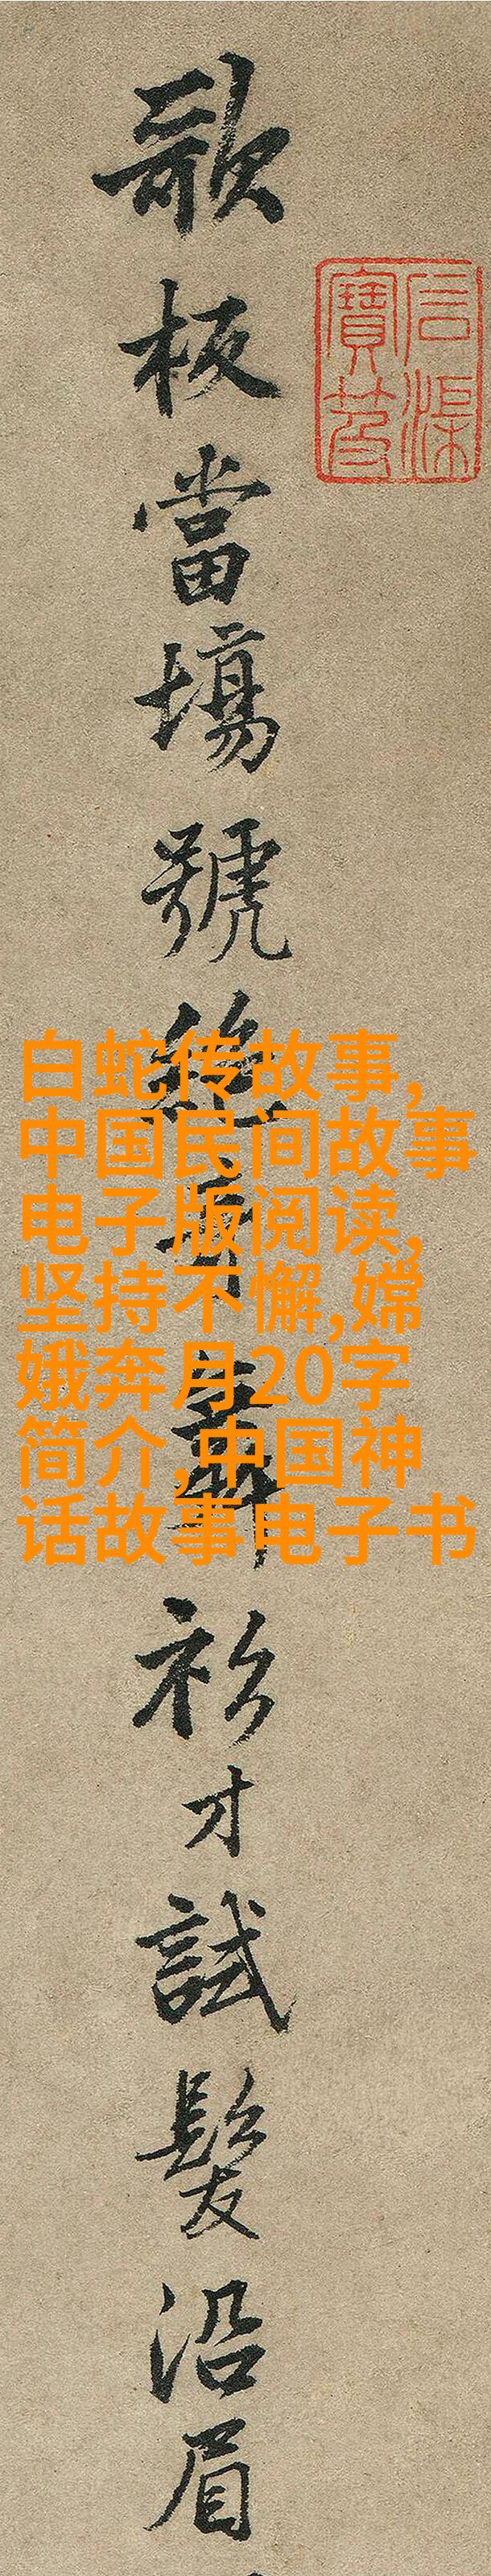 石渠
寶笈
歌板當塲號絕奇舞衫才試髮沿眉
白蛇传故事,
中国民间故事
电子版阅读,
坚持不懈,嫦
娥奔月20字
简介,中国神
话故事电子书